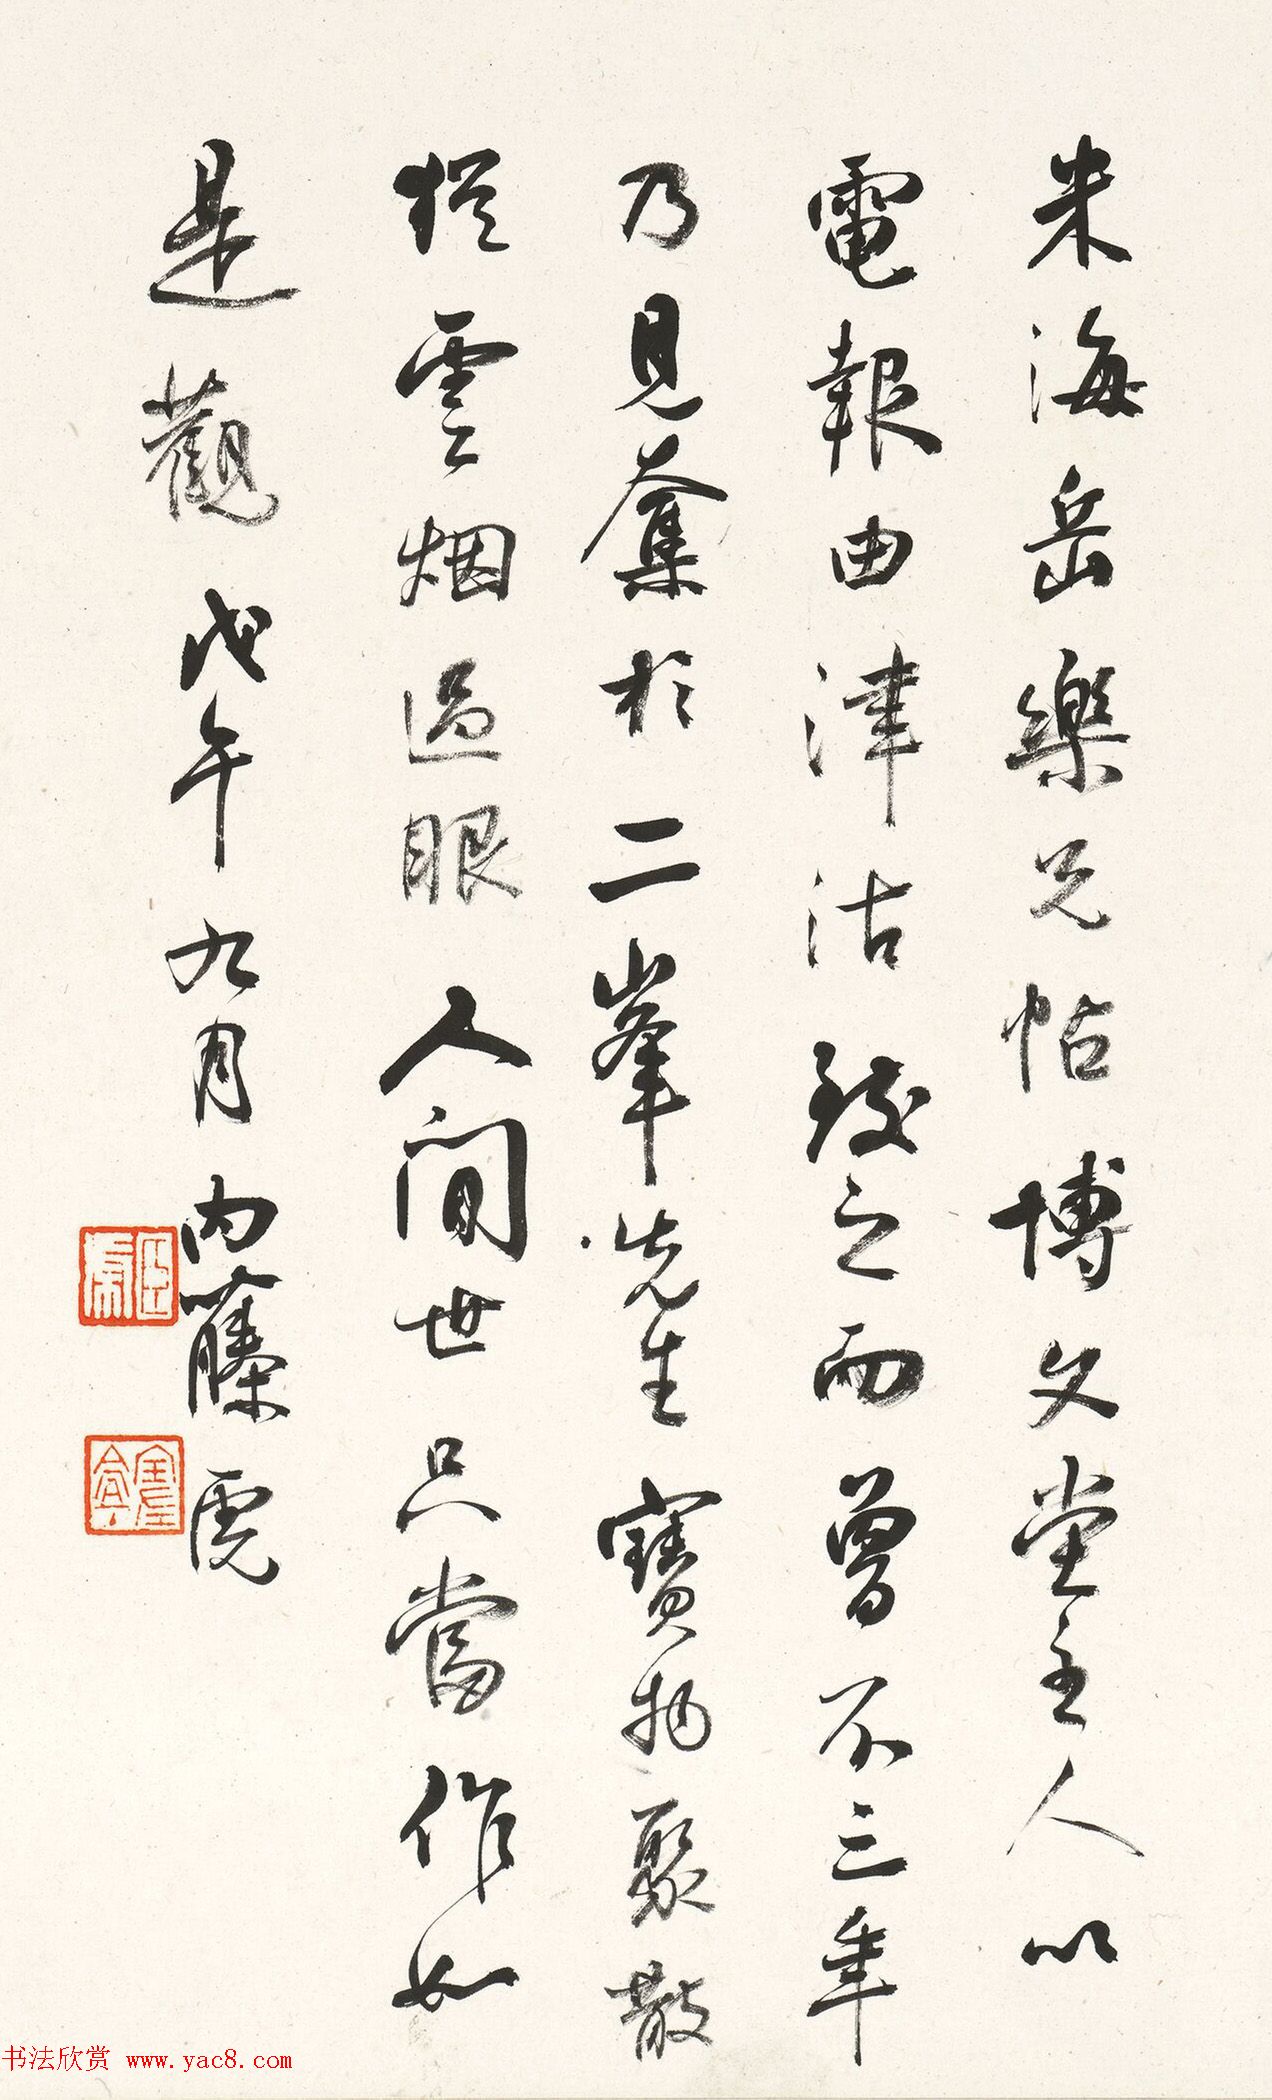 米海岳樂兄帖博文堂主人以
電報由津沽致之而曾不三年
乃見奪於二峯先生寶物聚散
猶雲烟過眼人間世只當作如
是觀戊午九月內藤虎
臣虎
书法欣赏 www.yac8.com